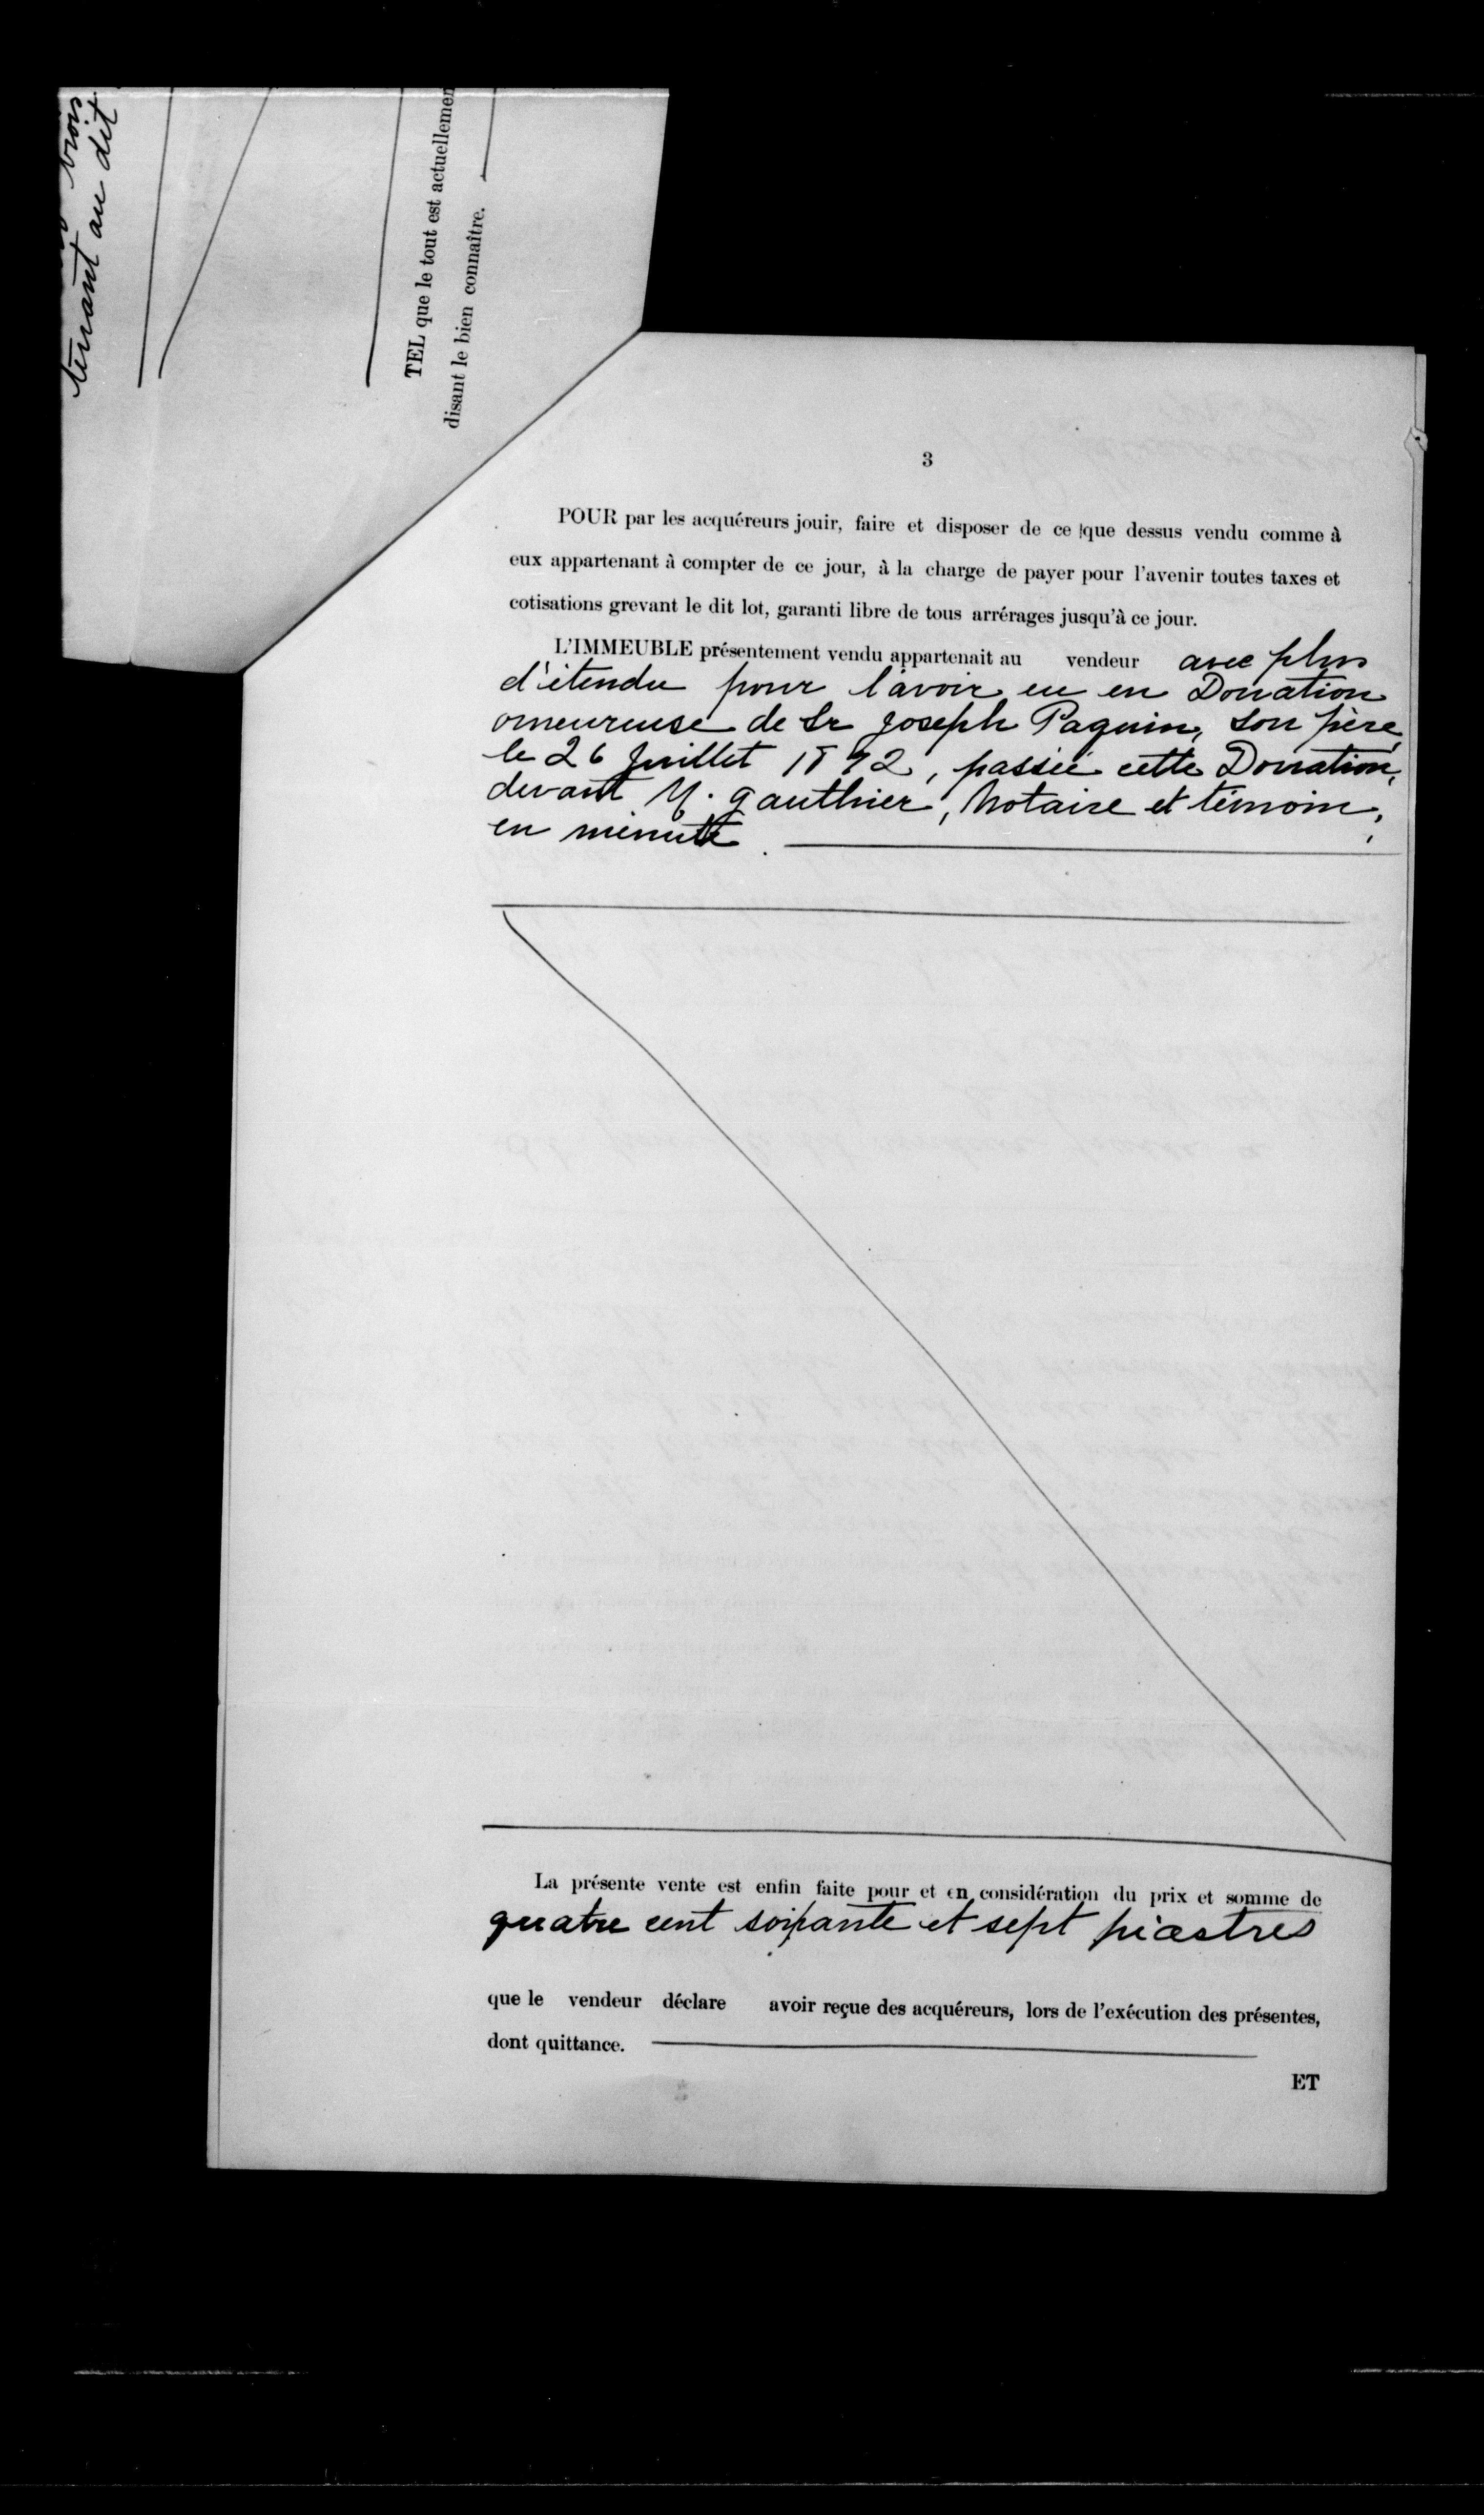 tenant au dit
TEL que le tout est actuellemen
disant le bien connaître.
3
POUR par les acquéreurs jouir, faire et disposer de ce que dessus vendu comme à
eux appartenant à compter de ce jour, à la charge de payer pour l'avenir toutes taxes et
cotisations grevant le dit lot, garanti libre de tous arrérages jusqu'à ce jour.
L'IMMEUBLE présentement vendu appartenait au vendeur avec plus
d'étendue pour l'avoir eu en Donation
omeureuse de Sr Joseph Paquin, son père,
le 26 Juillet 1892, passée cette Donation,
devant M. Gauthier, Notaire et témoin,
en minute.
La présente vente est enfin faite pour et en considération du prix et somme de
quatre cent soixante et sept piastres
que le vendeur déclare avoir reçue des acquéreurs, lors de l'exécution des présentes,
dont quittance.
ET